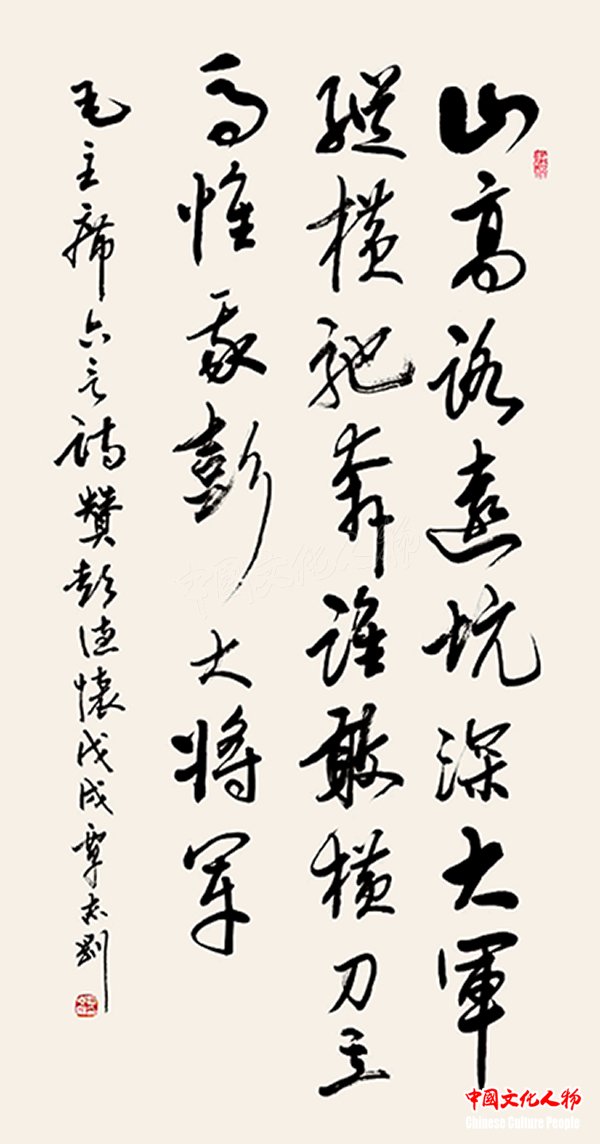 山高路遠坑深大軍
縱橫馳奔誰敢橫刀立
馬惟我彭大將軍
毛主席六言詩贊彭德懷戊戌覃志剛
中國文化人物
中國文化人物
Chinese Culture People